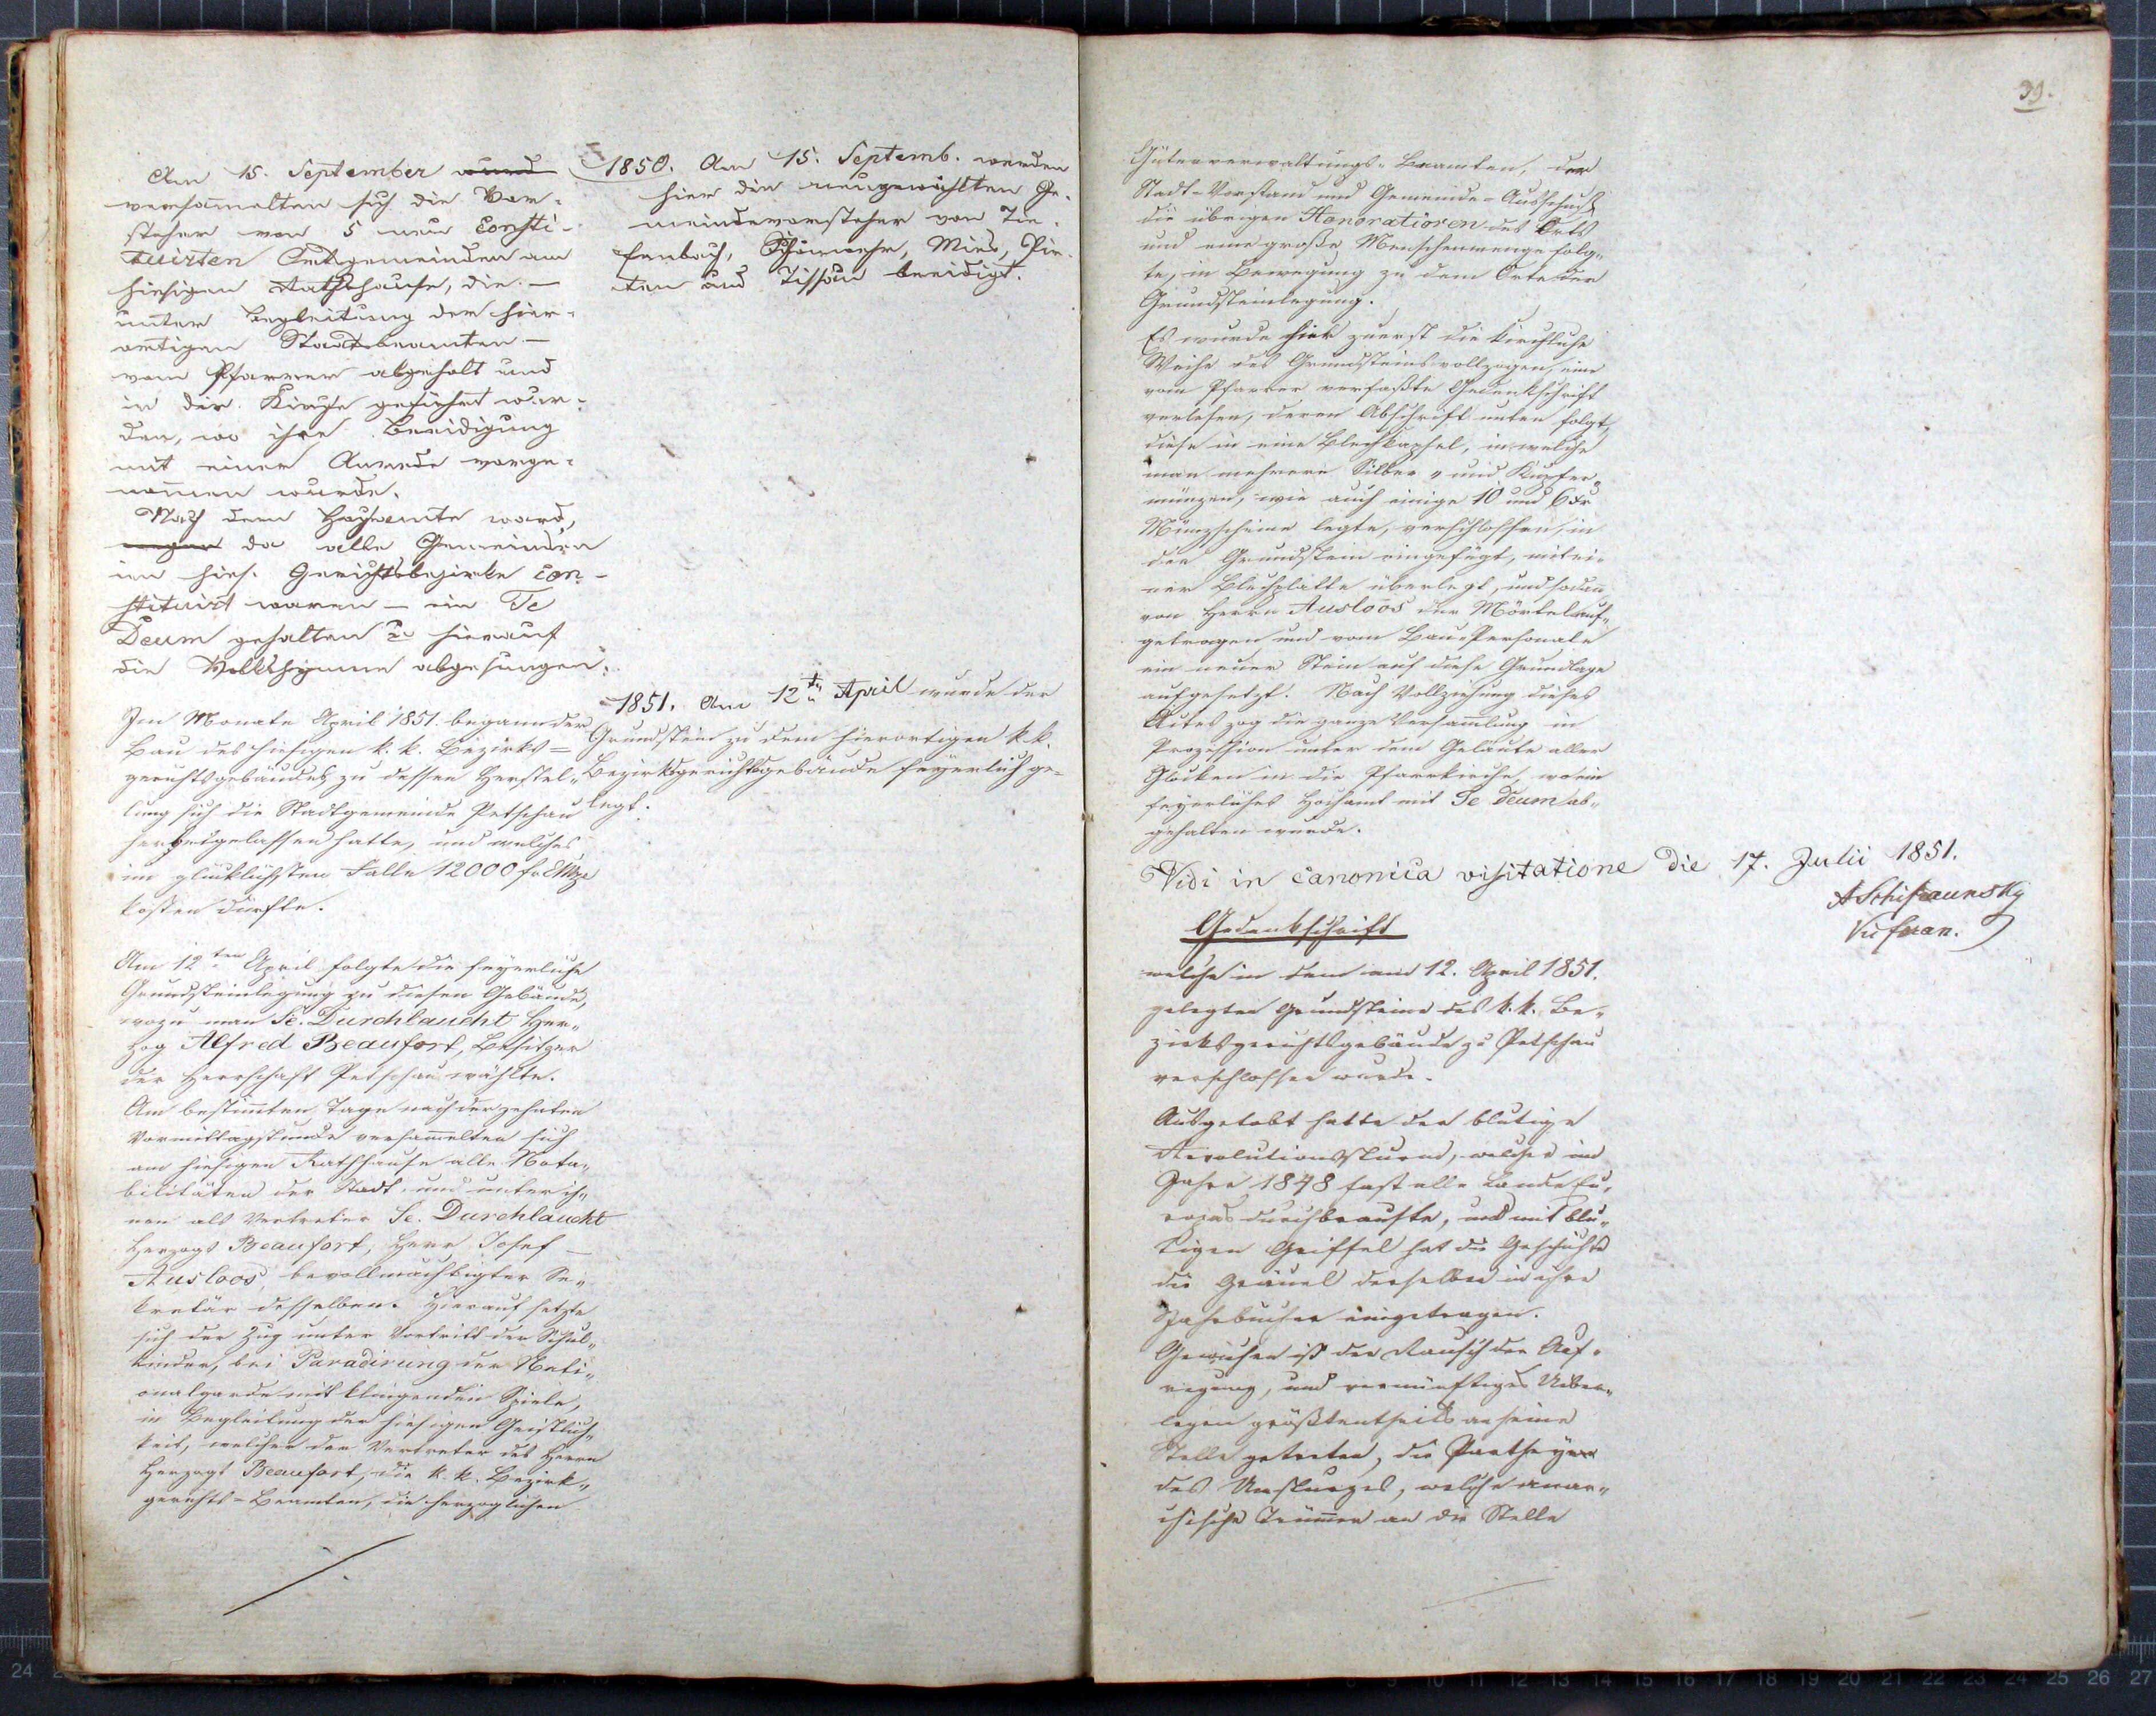 Am 15. September wurd
versam̄elten sich die Vor-
steher von 5 neu Consti-
tuirten Ortsgemeinden am
hiesigen Rathshause, die —
unter Begleitung der hier-
amtigen Stadtbeamten —
vom Pfarrer abgeholt und
in die Kirche geführt wur-
den, wo ihre Beeidigung
mit einer Anrede vorge-
nom̄en wurde.
Nach dem Hochamte ward,
wegen da alle Gemeinden
im hies. Gerichtsbezirke Con-
stituirt waren — ein Te
Deum gehalten u. hierauf
die Volkshymne abgesungen.
1850. Am 15. Septemb. werden
hier die neugewählten Ge-
meindevorsteher von Tie-
fenbach, Schönwehr, Mies, Pir-
ten und Tissau beeidigt.
Im Monate April 1851. begann der
Bau des hiesigen k. k. Bezirks-
gerichtsgebäudes zu dessen Herstel-
lung sich die Stadtgemeinde Petschau
herbeigelassen hatte, und welches
im glücklichsten Falle 12000 f. CMze
kosten dürfte.
1851. Am 12ten April wurde der
Grundstein zu dem hierortigen k.k.
Bezirksgerichtsgebäude feyerlich ge-
legt.
Am 12ten April folgte die feyerliche
Grundsteinlegung zu diesem Gebäude,
wozu man Se. Durchlaucht Her-
zog Alfred Beaufort, Besitzer
der Herrschaft Petschau wählte.
Am bestim̄ten Tage nach der zehnten
Vormittagstunde versam̄elten sich
am hiesigen Rathhause alle Nota-
bilitäten der Stadt und unter ih-
nen als Vertreter Se. Durchlaucht
Herzogs Beaufort, Herr Josef
Ausloos, bevollmächtigter Se-
kretär desselben. Hierauf setzte
sich der Zug unter Vortritt der Schul-
kinder, bei Paradirung der Nati-
onalgarde mit klingendem Spiele,
in Begleitung der hiesigen Geistlich-
keit, welcher der Vertreter des Herrn
Herzogs Beaufort, die k. k. Bezirk-
gerichts-Beamten, die herzoglichen
39.
Güterverwaltungs-Beamten, der
Stadt-Vorstand und Gemeinde-Ausschuß
die übrigen Honoratioren des Orts
und eine große Menschenmenge folg-
te, in Bewegung zu dem Orte der
Grundsteinlegung.
Es wurde hier zuerst die kirchliche
Weihe des Grundsteins vollzogen, eine
vom Pfarrer verfaßte Gedenkschrift
verlesen, deren Abschrift unten folgt,
diese in eine Blechkapsel, in welche
man mehrere Silber- und Kupfer-
münzen, wie auch einige 10 und 6 xr
Münzscheine legte, verschlossen, in
den Grundstein eingefügt, mit ei-
ner Blechplatte überlegt, und sodan̄
von Herrn Ausloos der Mörtel auf-
getragen und vom Bau-Personale
ein neuer Stein auf diese Grundlage
aufgesetzt. Nach Vollziehung dieses
Aktes zog die ganze Versam̄lung in
Prozession unter dem Geläute aller
Glocken in die Pfarrkirche, wo ein
feyerliches Hochamt mit Te Deum ab-
gehalten wurde.
Vidi in canonica visitatione die 17. Julii 1851.
Gedenkschrift
welche in dem am 12. April 1851.
gelegten Grundsteine des k. k. Be-
zirksgerichtsgebäude zu Petschau
verschlossen wurde.
Ausgetobt hatte der blutige
Revolutionssturm, welcher im
Jahre 1848 fast alle Lande Eu-
ropas durchbrauste, und mit blu-
tigen Griffel hat die Geschichte
die Gräuel desselben in ihre
Jahrbücher eingetragen.
Gewichen ist der Rausch der Auf-
regung, und vernünftiges Ueber-
legen größtentheils an seine
Stelle getreten, die Partheyen
des Umsturzes, welche anar-
chische Trüm̄er an die Stelle